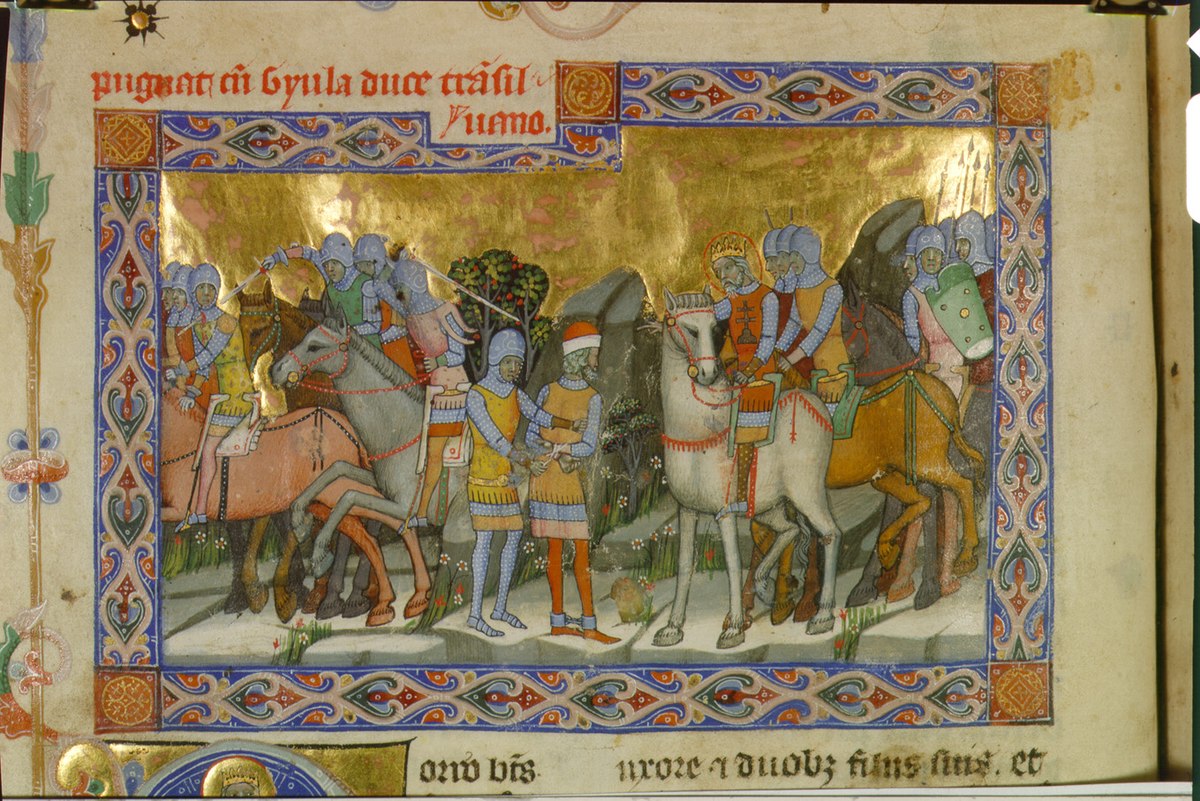 pugnat cū Gyula duce trāsil
uano.
uxore ⁊ duobꝫ filiis suis. et